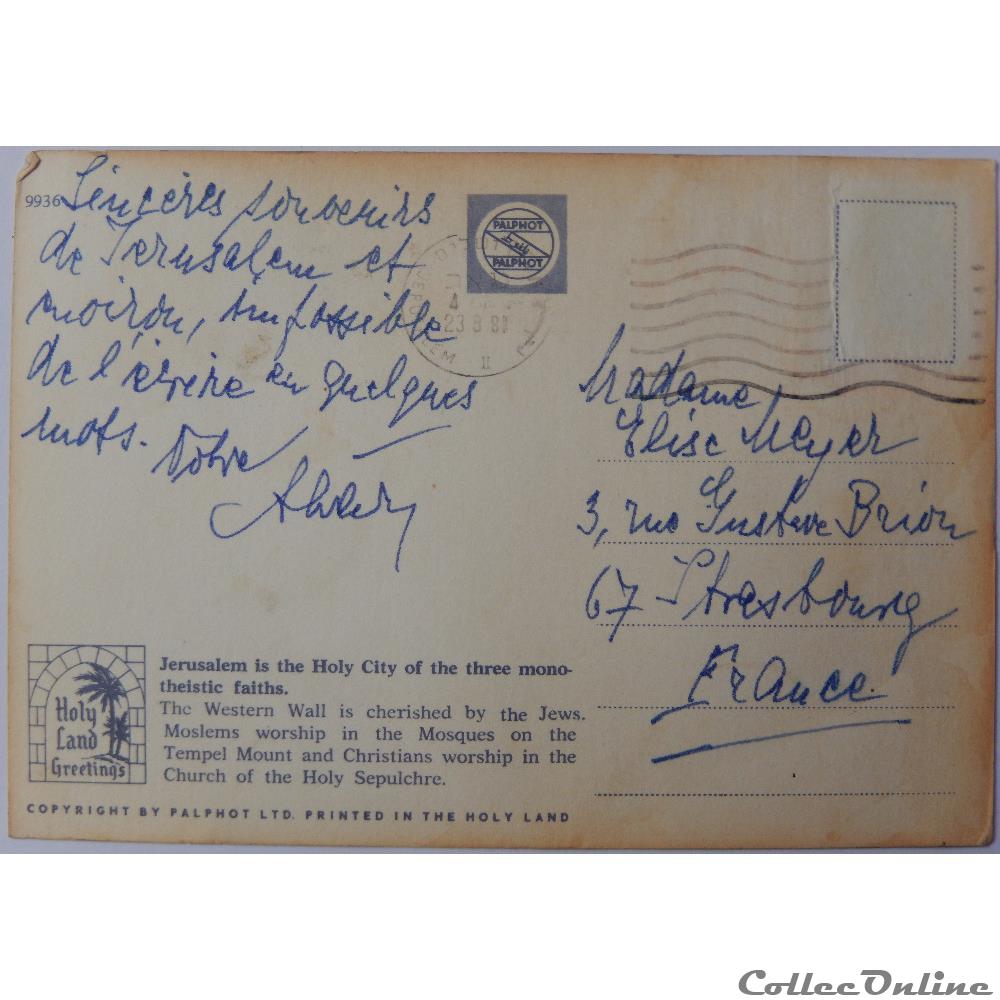 9936
Sincères souvenirs
de Jerusalem et
environ, impossible
de l'écrire en quelques
mots.
Votre
PALPHOT
PALPHOT
JERUSALEM
23 8 8
II
Madame
Elise Meyer
3, rue Gustave Brion
67 Strasbourg
France
Holy
Land
Greetings
Jerusalem is the Holy City of the three mono-
theistic faiths.
The Western Wall is cherished by the Jews.
Moslems worship in the Mosques on the
Tempel Mount and Christians worship in the
Church of the Holy Sepulchre.
COPYRIGHT BY PALPHOT LTD. PRINTED IN THE HOLY LAND
CollecOnline